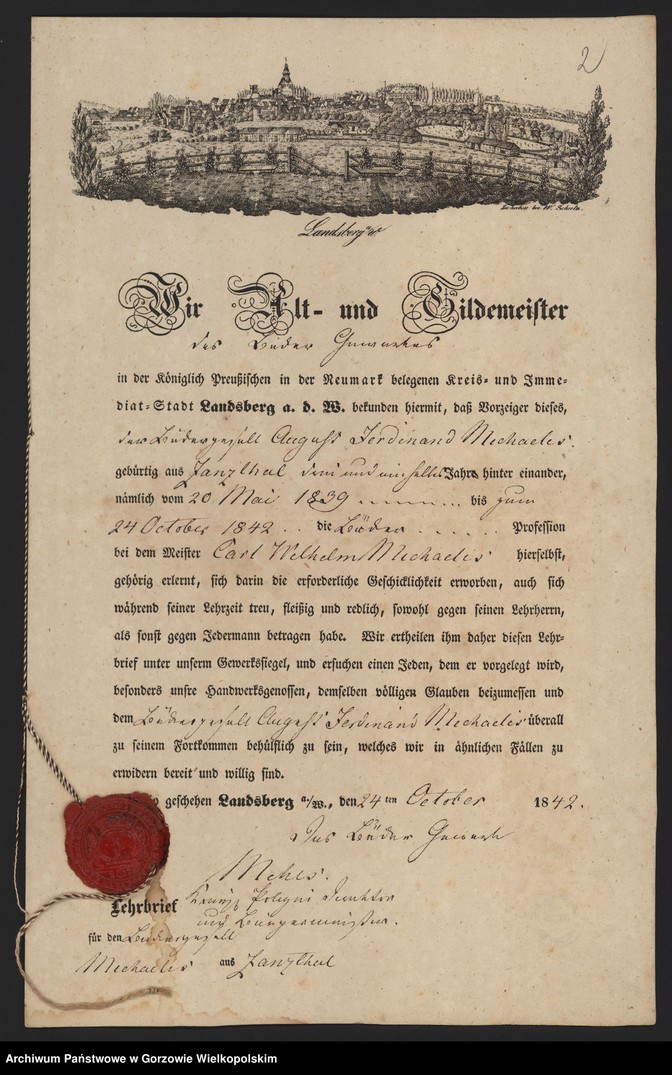 2
Landsberg a/W
Wir Alt- und Gildemeister
des Gewerkes
in der Königlich Preußischen in der Neumark belegenen Kreis- und Imme-
diat-Stadt Landsberg a. d. W. bekunden hiermit, daß Vorzeiger dieses,
August Ferdinand Michaelis.
gebürtig aus Zanzthal drei und ein halbes Jahre hinter einander,
nämlich vom 20 Mai 1839 bis zum
24 October 1842 . . die . . . . . Profession
bei dem Meister Carl Wilhelm Michaelis hierselbst,
gehörig erlernt, sich darin die erforderliche Geschicklichkeit erworben, auch sich
während seiner Lehrzeit treu, fleißig und redlich, sowohl gegen seinen Lehrherrn,
als sonst gegen Jedermann betragen habe. Wir ertheilen ihm daher diesen Lehr-
brief unter unserm Gewerkssiegel, und ersuchen einen Jeden, dem er vorgelegt wird,
besonders unsre Handwerksgenossen, demselben völligen Glauben beizumessen und
dem August Ferdinand Michaelis überall
zu seinem Fortkommen behülflich zu sein, welches wir in ähnlichen Fällen zu
erwidern bereit und willig sind.
geschehen Landsberg a/W., den 24 ten October 1842.
Das Gewerk
Lehrbrief
und Bürgermeister.
für den
Michaelis aus Zanzthal
Archiwum Państwowe w Gorzowie Wielkopolskim